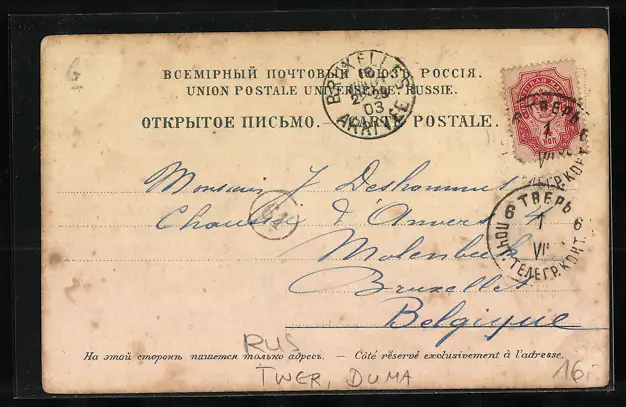 ВСЕМІРНЫЙ ПОЧТОВЫЙ СОЮЗЪ. РОССІЯ.
UNION POSTALE UNIVERSELLE. RUSSIE.
BRUXELLES
03
ARRIVÉE
ТВЕРЬ
1
6
ОТКРЫТОЕ ПИСЬМО. — CARTE POSTALE.
Monsieur J Deshommes
Chaussée d'Anvers
Molenbeek
Bruxelles
Belgique
6 ТВЕРЬ 6
1
VII
ПОЧТ. ТЕЛЕГР. КОНТ.
На этой сторонѣ пишется только адресъ. — Côté réservé exclusivement à l'adresse.
RUS
TWER, DUMA
16,-